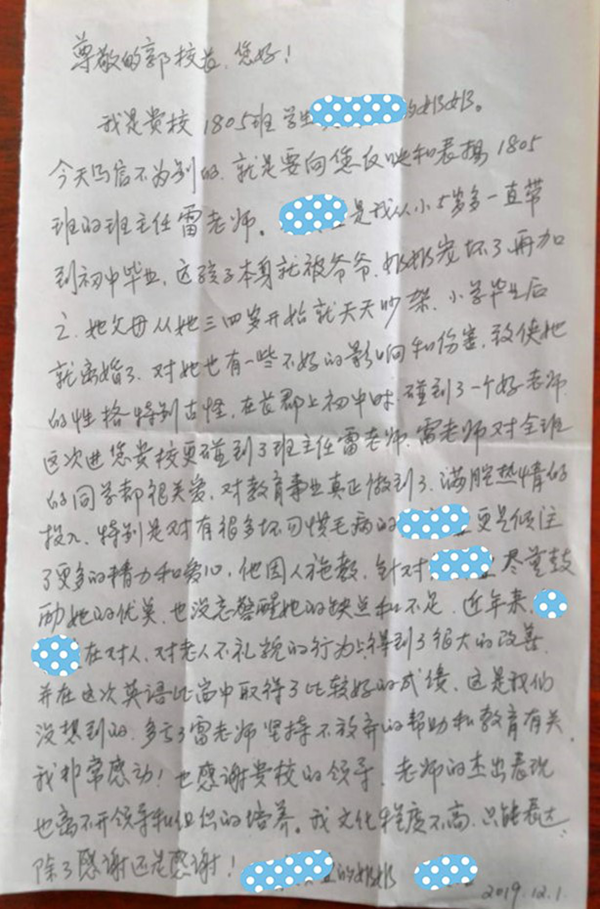 尊敬的郭校长，您好！
我是贵校1805班学生的奶奶。
今天写信不为别的，就是要向您反映和表扬1805
班的班主任雷老师。是我从小5岁多一直带
到初中毕业，这孩子本身就被爷爷、奶奶宠坏了，再加
之，她父母从她三四岁开始就天天吵架，小学毕业后
就离婚了，对她也有一些不好的影响和伤害，致使她
的性格特别古怪，在首郡上初中时，碰到了一个好老师，
这次进您贵校更碰到了班主任雷老师，雷老师对全班
的同学都很关爱，对教育事业真正做到了，满腔热情的
投入，特别是对有很多坏习惯毛病的更是倾注
了更多的精力和爱心，他因人施教，针对尽量鼓
励她的优美，也没忘警醒她的缺点和不足，近年来，
在对人、对老人不礼貌的行为上得到了很大的改善，
并在这次英语比赛中取得了比较好的成绩，这是我们
没想到的，多亏了雷老师坚持不放弃的帮助和教育有关，
我非常感动！也感谢贵校的领导，老师的杰出表现
也离不开领导和组织的培养。我文化程度不高，只能表达，
除了感谢还是感谢！的奶奶
2019.12.1.